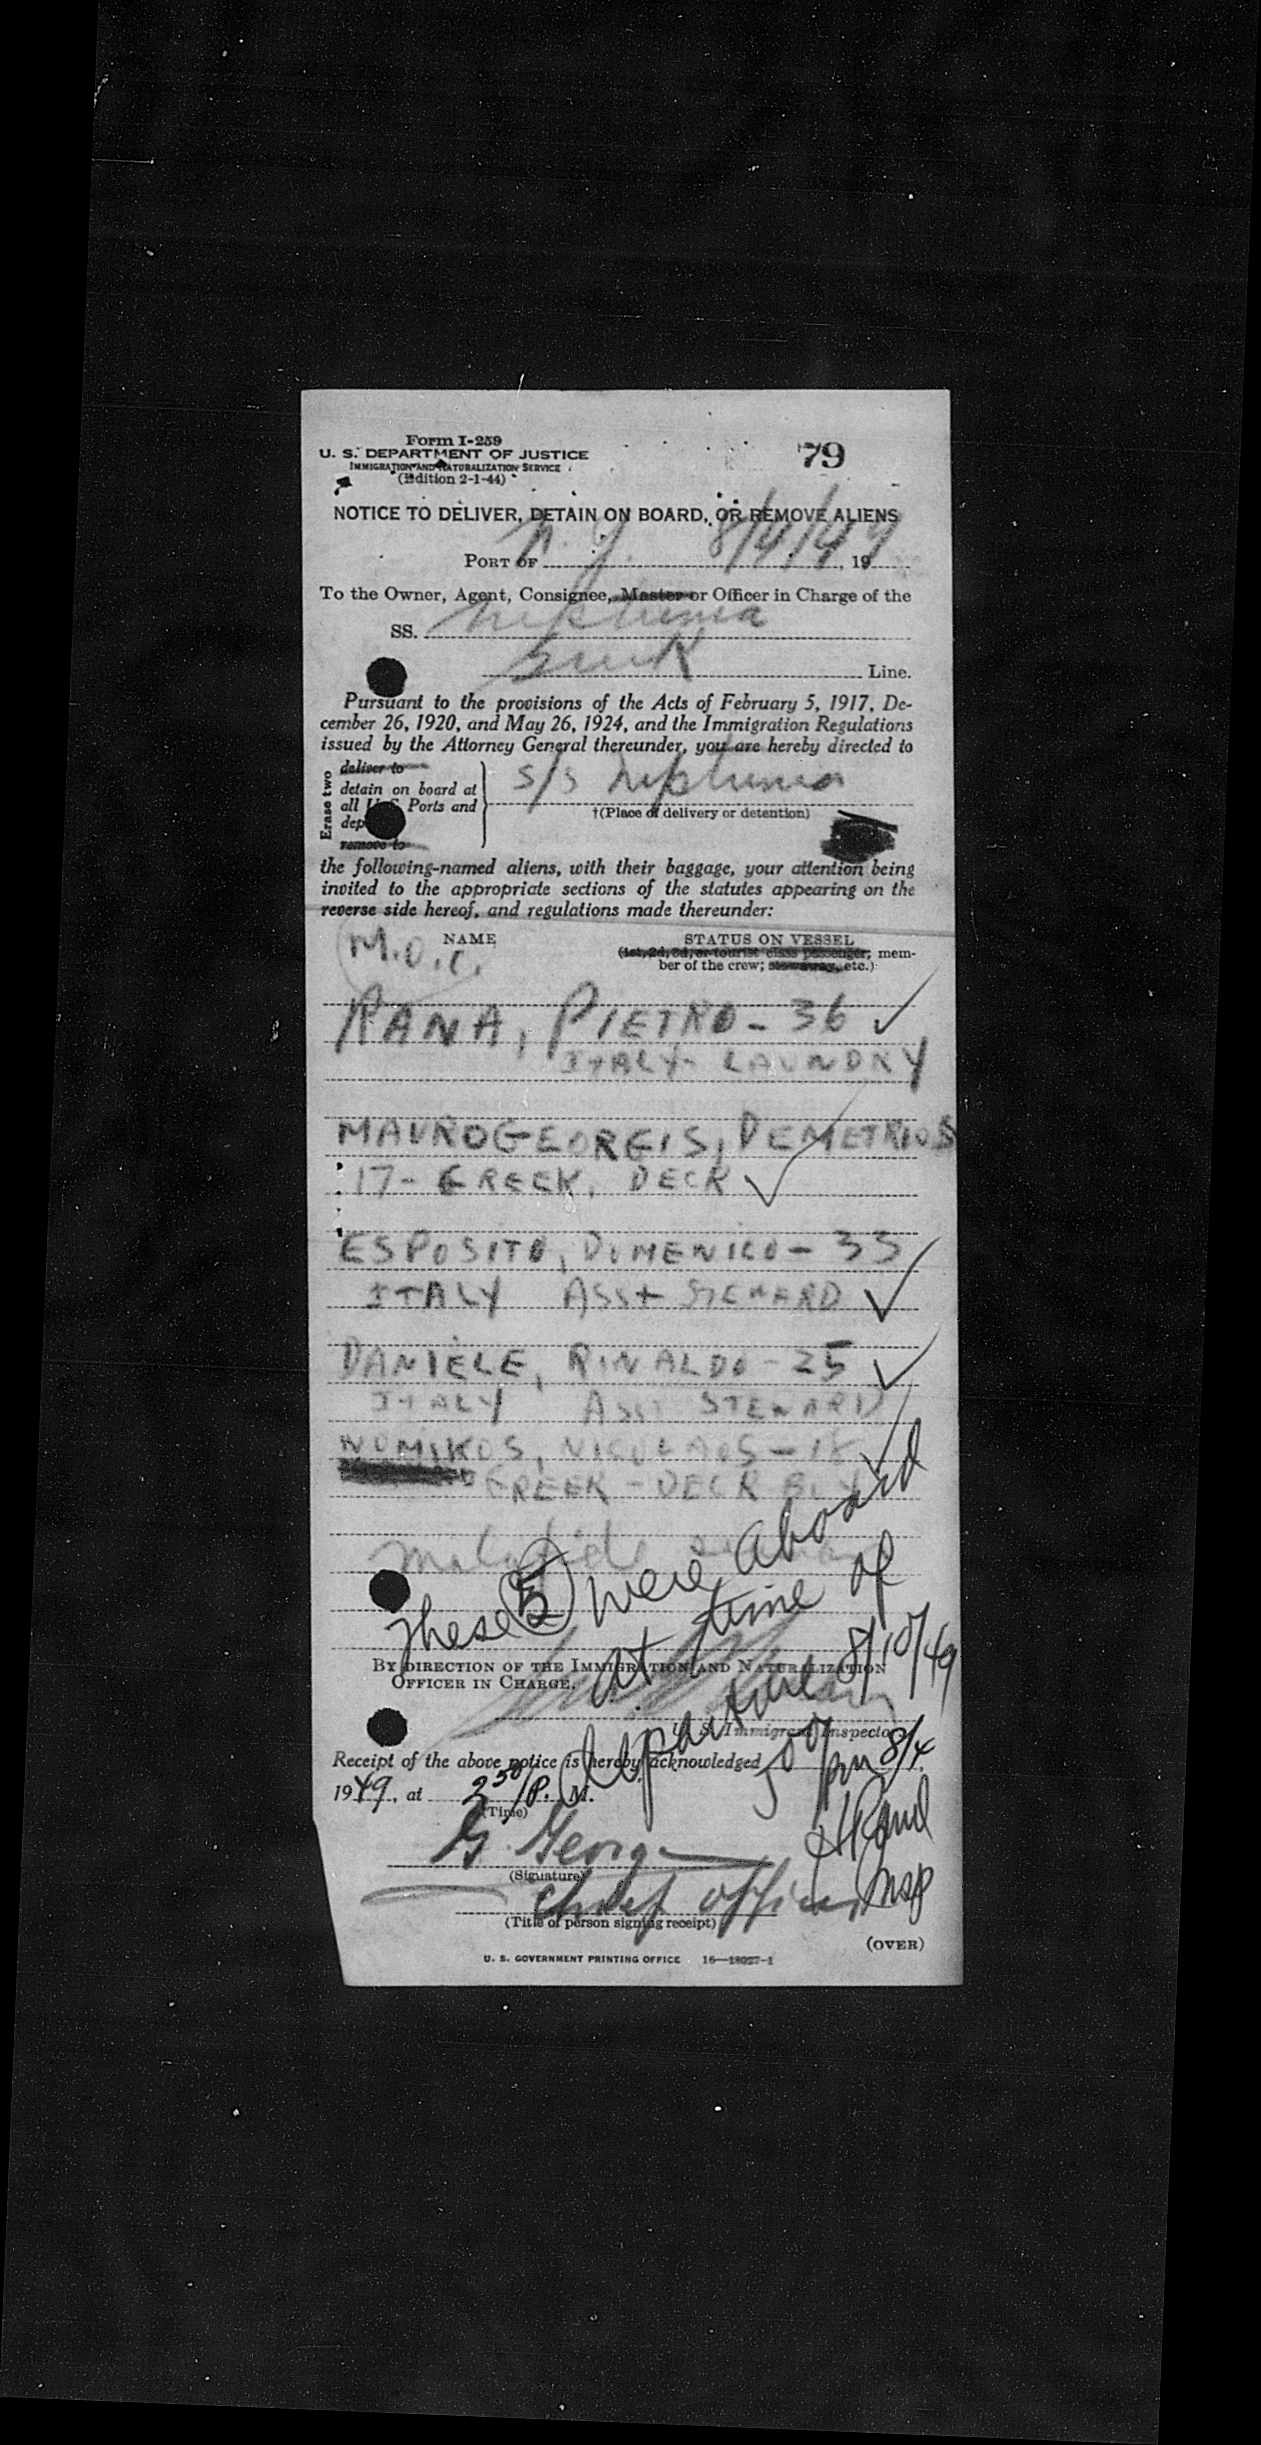 Form I-259
79
U. S. DEPARTMENT OF JUSTICE
IMMIGRATION AND NATURALIZATION SERVICE
(Edition 2-1-44)
NOTICE TO DELIVER, DETAIN ON BOARD, OR REMOVE ALIENS
PORT OF N. Y. 8/4/49, 19
To the Owner, Agent, Consignee, Master or Officer in Charge of the
SS. Neptunia
Greek Line.
Pursuant to the provisions of the Acts of February 5, 1917, De-
cember 26, 1920, and May 26, 1924, and the Immigration Regulations
issued by the Attorney General thereunder, you are hereby directed to
Erase two
deliver to
detain on board at
all U. S. Ports and
dep
remove to
S/S Neptunia
†(Place of delivery or detention)
the following-named aliens, with their baggage, your attention being
invited to the appropriate sections of the statutes appearing on the
reverse side hereof, and regulations made thereunder:
M.O.C.
NAME
STATUS ON VESSEL
(1st, 2d, 3d, or tourist class passenger; mem-
ber of the crew; stowaway, etc.)
RANA, PIETRO - 36 ✓
ITALY - LAUNDRY
MAUROGEORGIS, DEMETRIOS
17 - GREEK, DECK ✓
ESPOSITO, DOMENICO - 33
ITALY ASST STEWARD ✓
DANIELE, RINALDO - 25 ✓
ITALY ASST STEWARD
NOMIKOS, NICOLAOS - 18 ✓
GREEK - DECK BOY
Malafide
These 5 were aboard
at time of
departure 8/10/49
BY DIRECTION OF THE IMMIGRATION AND NATURALIZATION
OFFICER IN CHARGE.
U. S. Immigrant Inspector.
Receipt of the above notice is hereby acknowledged 8/4,
500/pm
1949, at 2 50/P. M.
(Time)
G. George
(Signature)
Chief officer
Insp
(Title of person signing receipt)
(OVER)
U. S. GOVERNMENT PRINTING OFFICE 16—18027-1